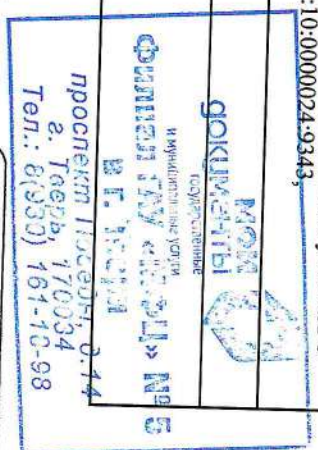 :10:0000024:9343,
МОИ
ДОКУМЕНТЫ
государственные
и муниципальные услуги
ФИЛИАЛ ГАУ «МФЦ» № 5
В Г. ТВЕРИ
проспект Победы, д.14
г. Тверь, 170034
Тел.: 8(930) 161-10-98